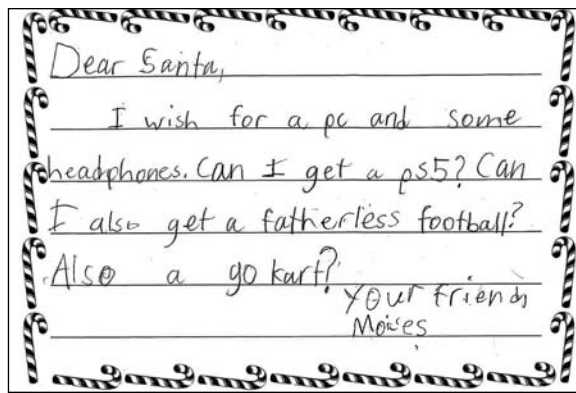 Dear Santa,
I wish for a pc and some
headphones. Can I get a ps5? Can
I also get a fatherless football?
Also a go kart?
Your friend,
Moises